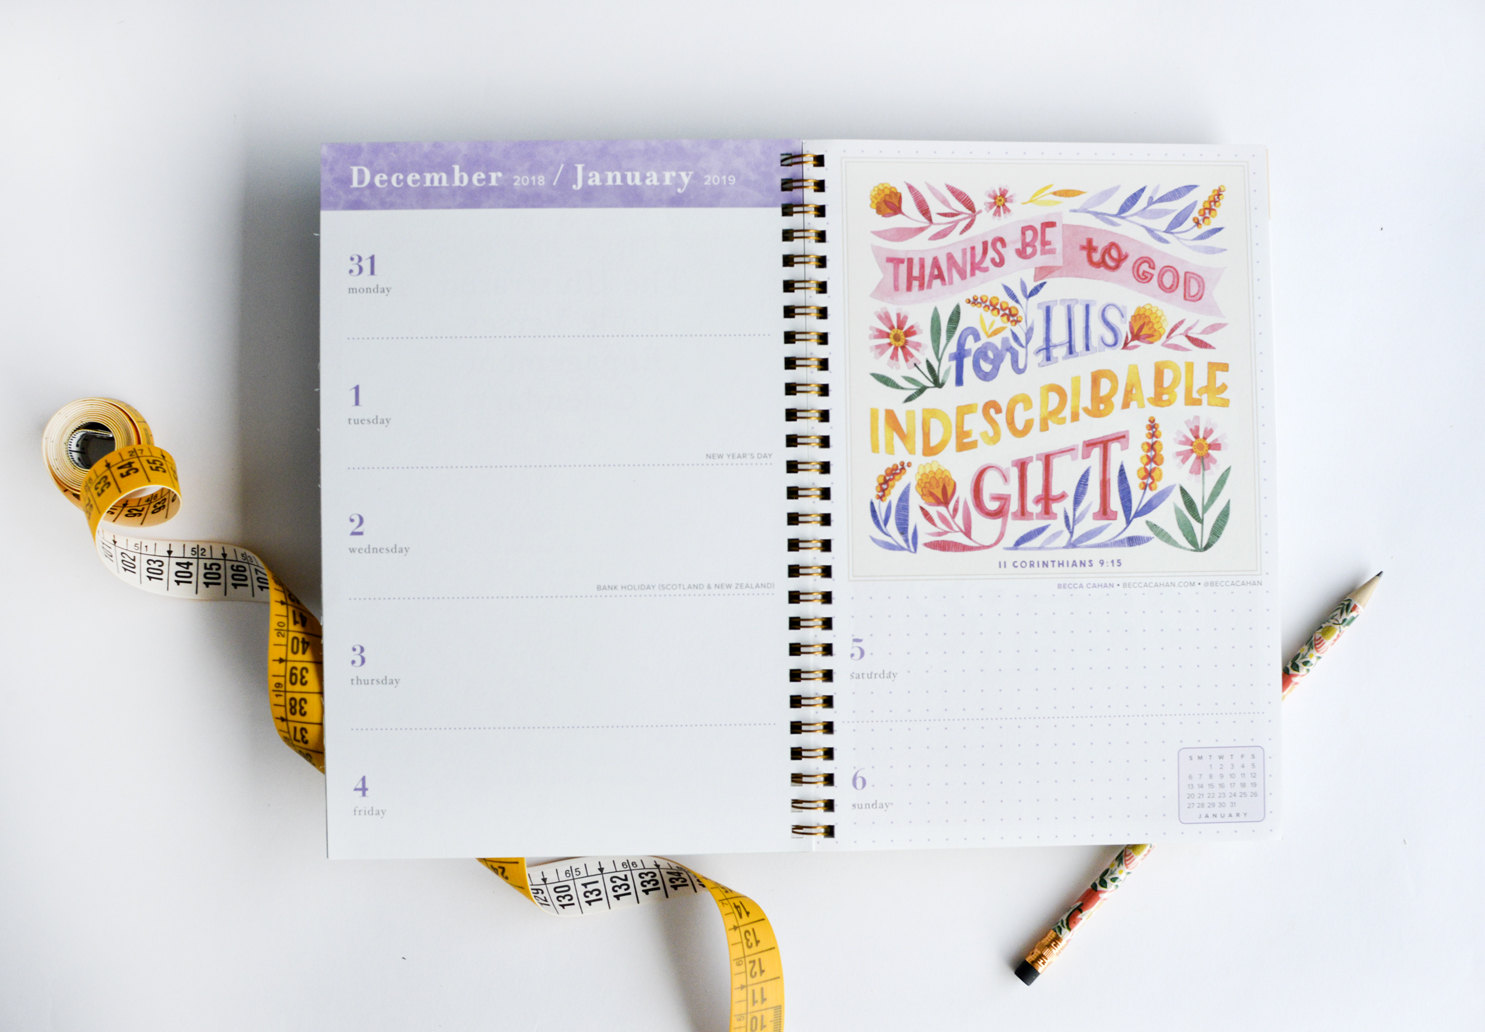 December 2018 / January 2019
31
monday
1
tuesday
NEW YEAR'S DAY
2
wednesday
BANK HOLIDAY (SCOTLAND & NEW ZEALAND)
3
thursday
4
friday
THANKS BE to GOD
for HIS
INDESCRIBABLE
GIFT
II CORINTHIANS 9:15
BECCA CAHAN • BECCACAHAN.COM • @BECCACAHAN
5
saturday
6
sunday
S M T W T F S
1 2 3 4 5
6 7 8 9 10 11 12
13 14 15 16 17 18 19
20 21 22 23 24 25 26
27 28 29 30 31
JANUARY
53 54 55
92 93
102 103 104 105 106 107
51 52
41
40
39
38
37
20
19
129 130 131 132 133 134
65 66
14
13
12
11
10